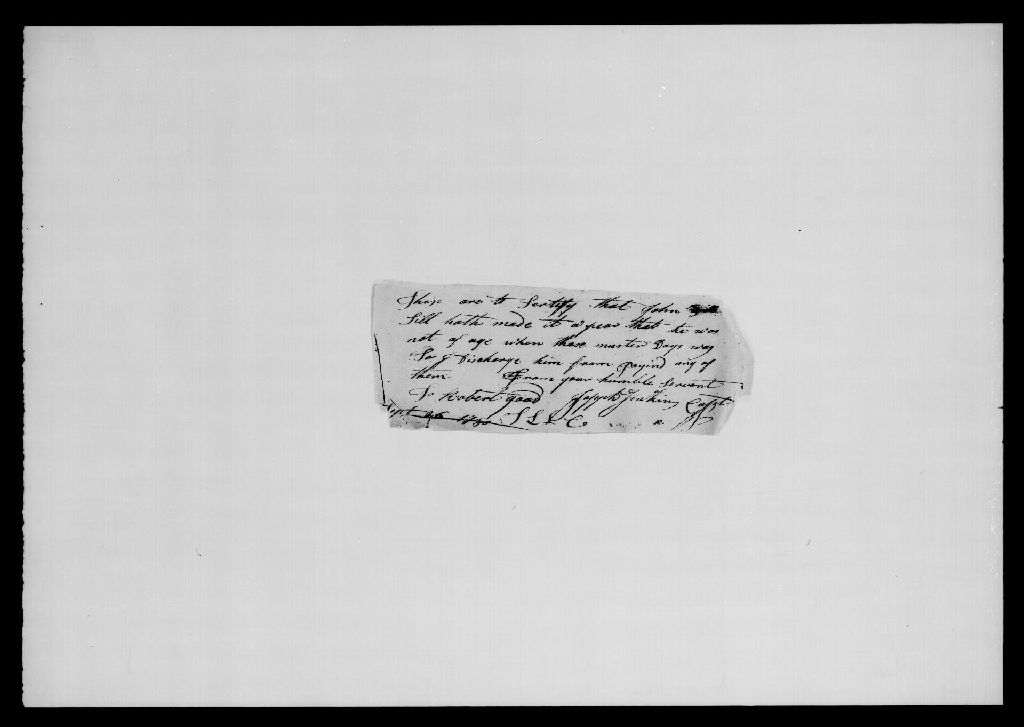 These are to Sertify that John
Sill hath made it apear that he was
not of age when these muster Days was
So I Discharge him from paying any of
them From your humble Servant
To Robert good Joseph Jenkins Capt
Sept S L & Co